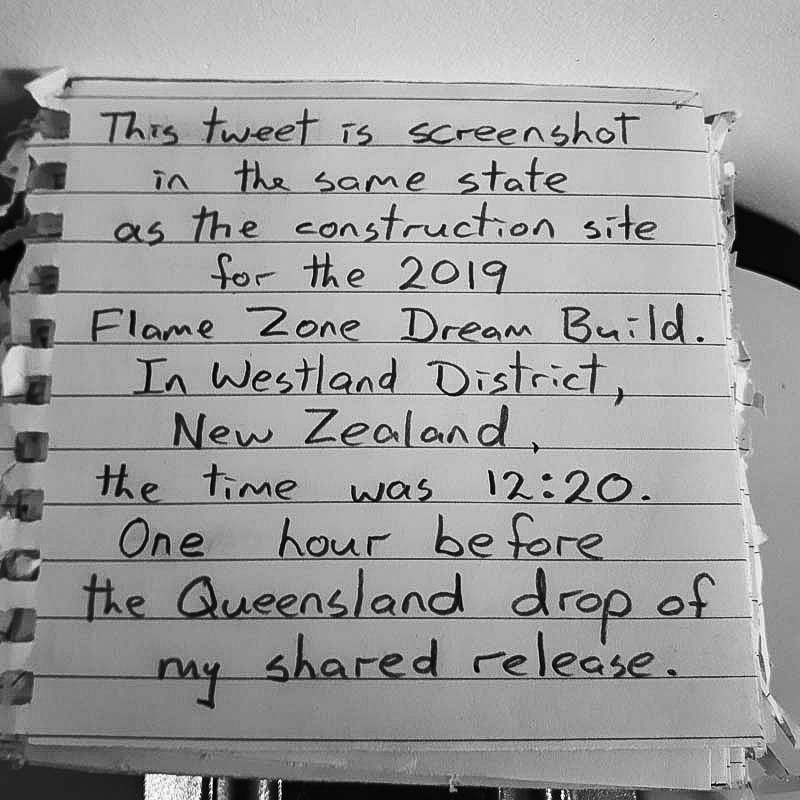 This tweet is screenshot
in the same state
as the construction site
for the 2019
Flame Zone Dream Build.
In Westland District,
New Zealand,
the time was 12:20.
One hour before
the Queensland drop of
my shared release.